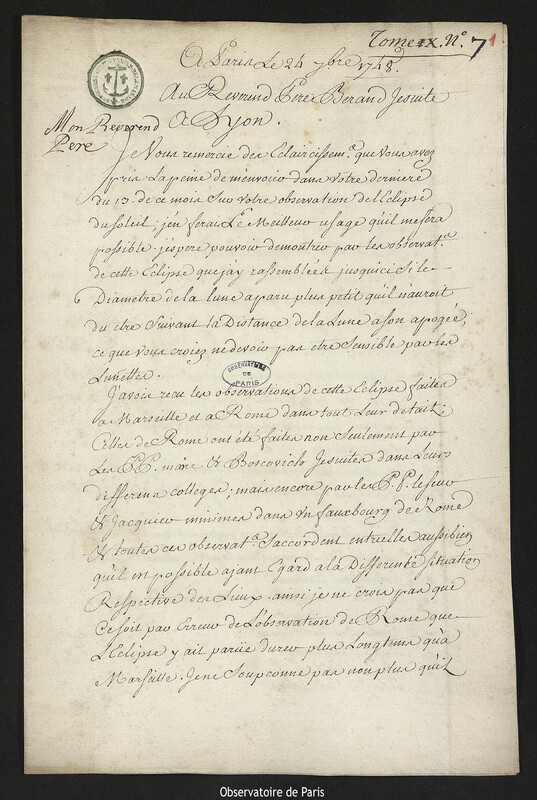 Tome IX. N.° 71
A Paris Le 24 7bre 1748.
Au Reverend Pere Beraud Jesuite
A Lyon.
Mon Reverend
Pere
Je Vous remercie des Eclaircissem.s que vous avez
pris La peine de m'envoier dans votre derniere
du 13. de ce mois Sur Votre observation de l'Eclipse
du Soleil; j'en ferai Le Meilleur usage qu'il me sera
possible. j'espere pouvoir demontrer par les observat.s
de cette Eclipse que j'ay rassemblées jusquici Si le
6 Diametre de la lune a paru plus petit qu'il n'auroit
du etre Suivant la Distance de la Lune a son apogée,
ce que vous croiez ne devoir pas etre Sensible par les
Lunettes.
J'avois reçu les observations de cette Eclipse faites
a Marseille et a Rome dans tout leur detail;
Celles de Rome ont été faites non Seulement par
Les P.P. maire & Boscovich Jesuites dans Leurs
differens colleges; mais encore par les P.P. leseur
& Jacquier minimes dans un fauxbourg de Rome
& toutes ces observat.s S'accordent entr'elles aussi bien
qu'il est possible ajant Egard a la Differente Situation
Respective des Lieux. ainsi je ne crois pas que
Ce soit par Erreur de L'observation de Rome que
L'Eclipse y ait parüe durer plus Longtems qu'a
Marseille. Je ne Soupconne pas non plus qu'il
OBSERVATOIRE
DE
PARIS
Observatoire de Paris